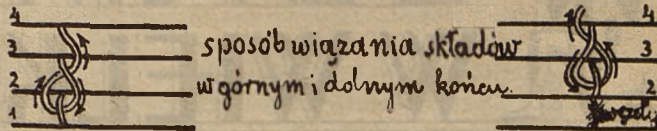 4 4
3 sposób wiązania składów 3
2 w górnym i dolnym końcu. 2
1